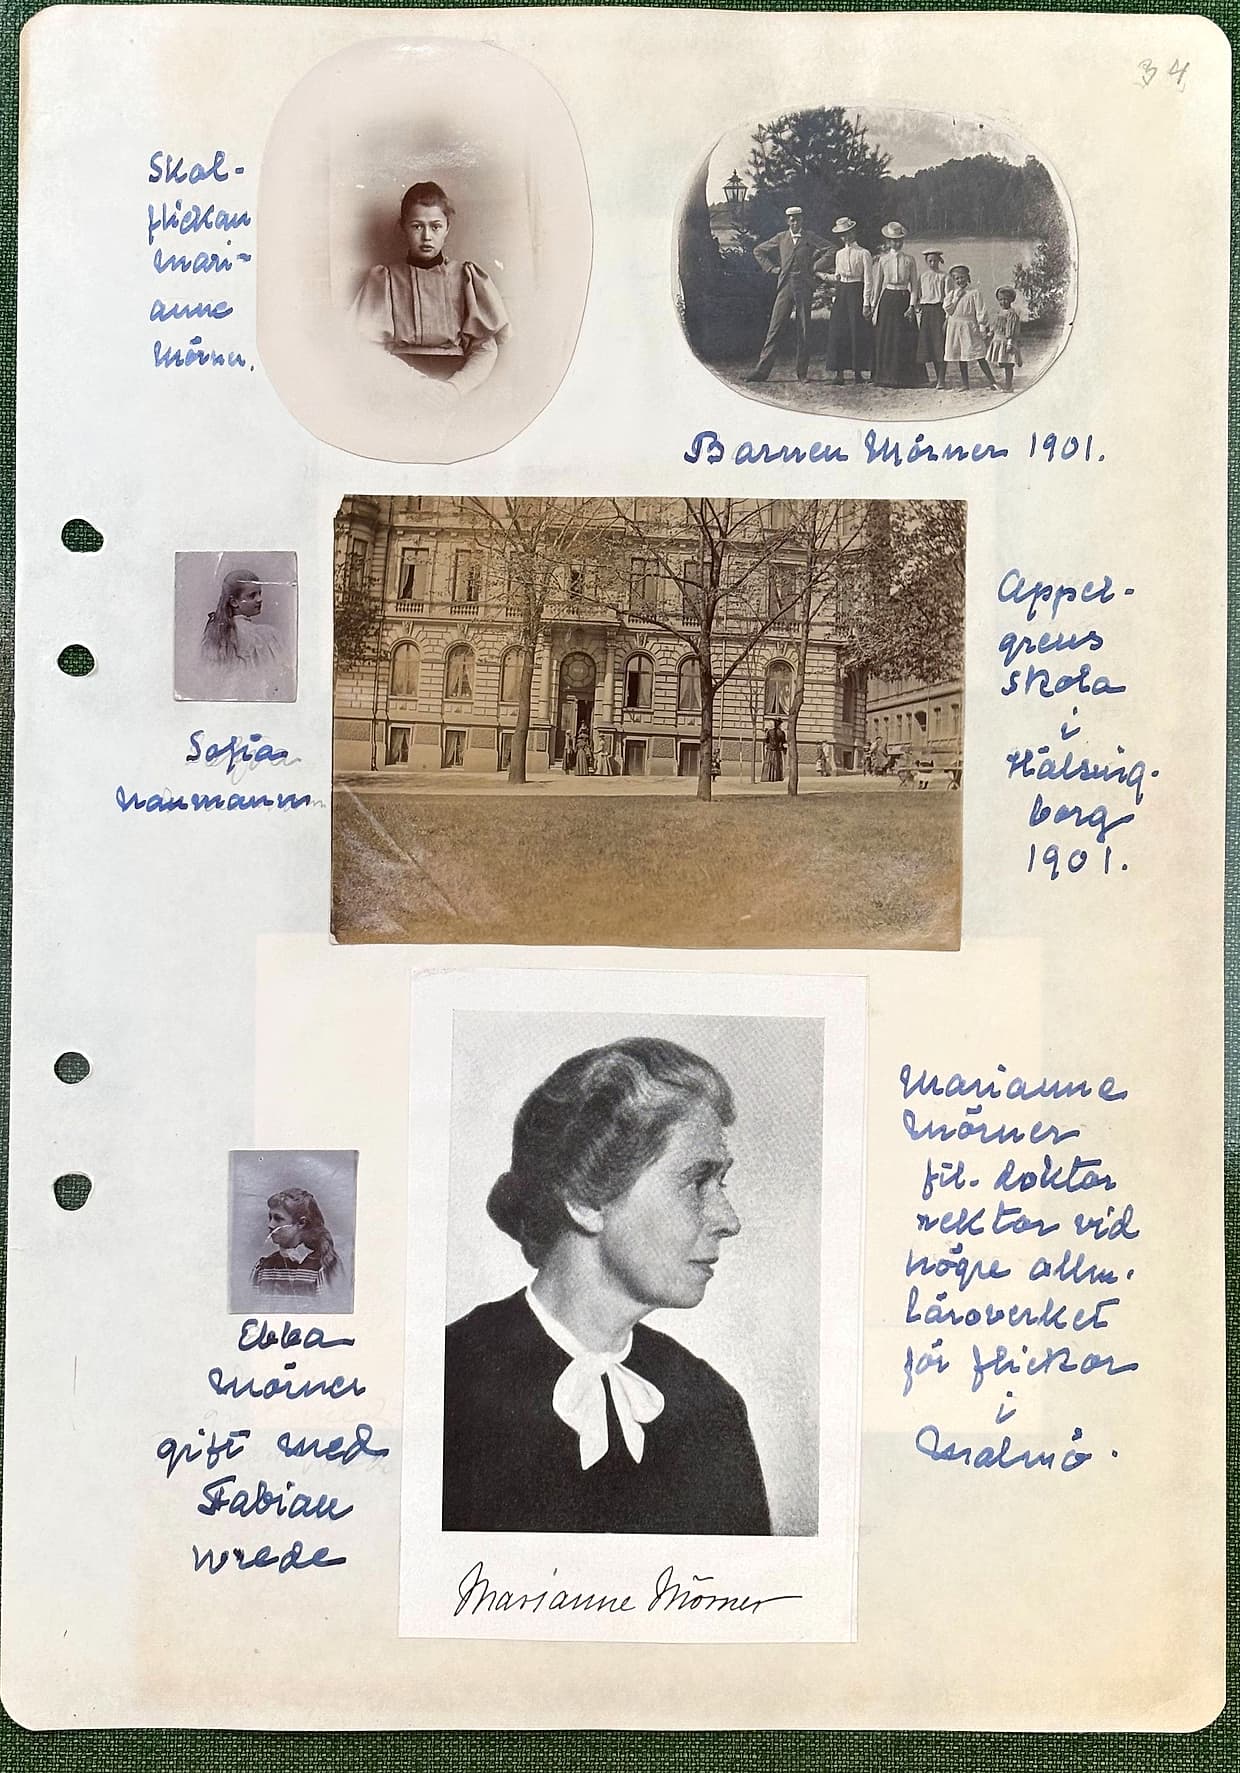 34
Skol-
flickan
Mari-
anne
Mörner.
Barnen Mörner 1901.
Sofia
Naumann
Appel-
grens
skola
i
Hälsing-
borg
1901.
Marianne
Mörner
fil. doktor
rektor vid
högre allm.
läroverket
för flickor
i
Malmö.
Ebba
Mörner
gift med
Fabian
Wrede
Marianne Mörner